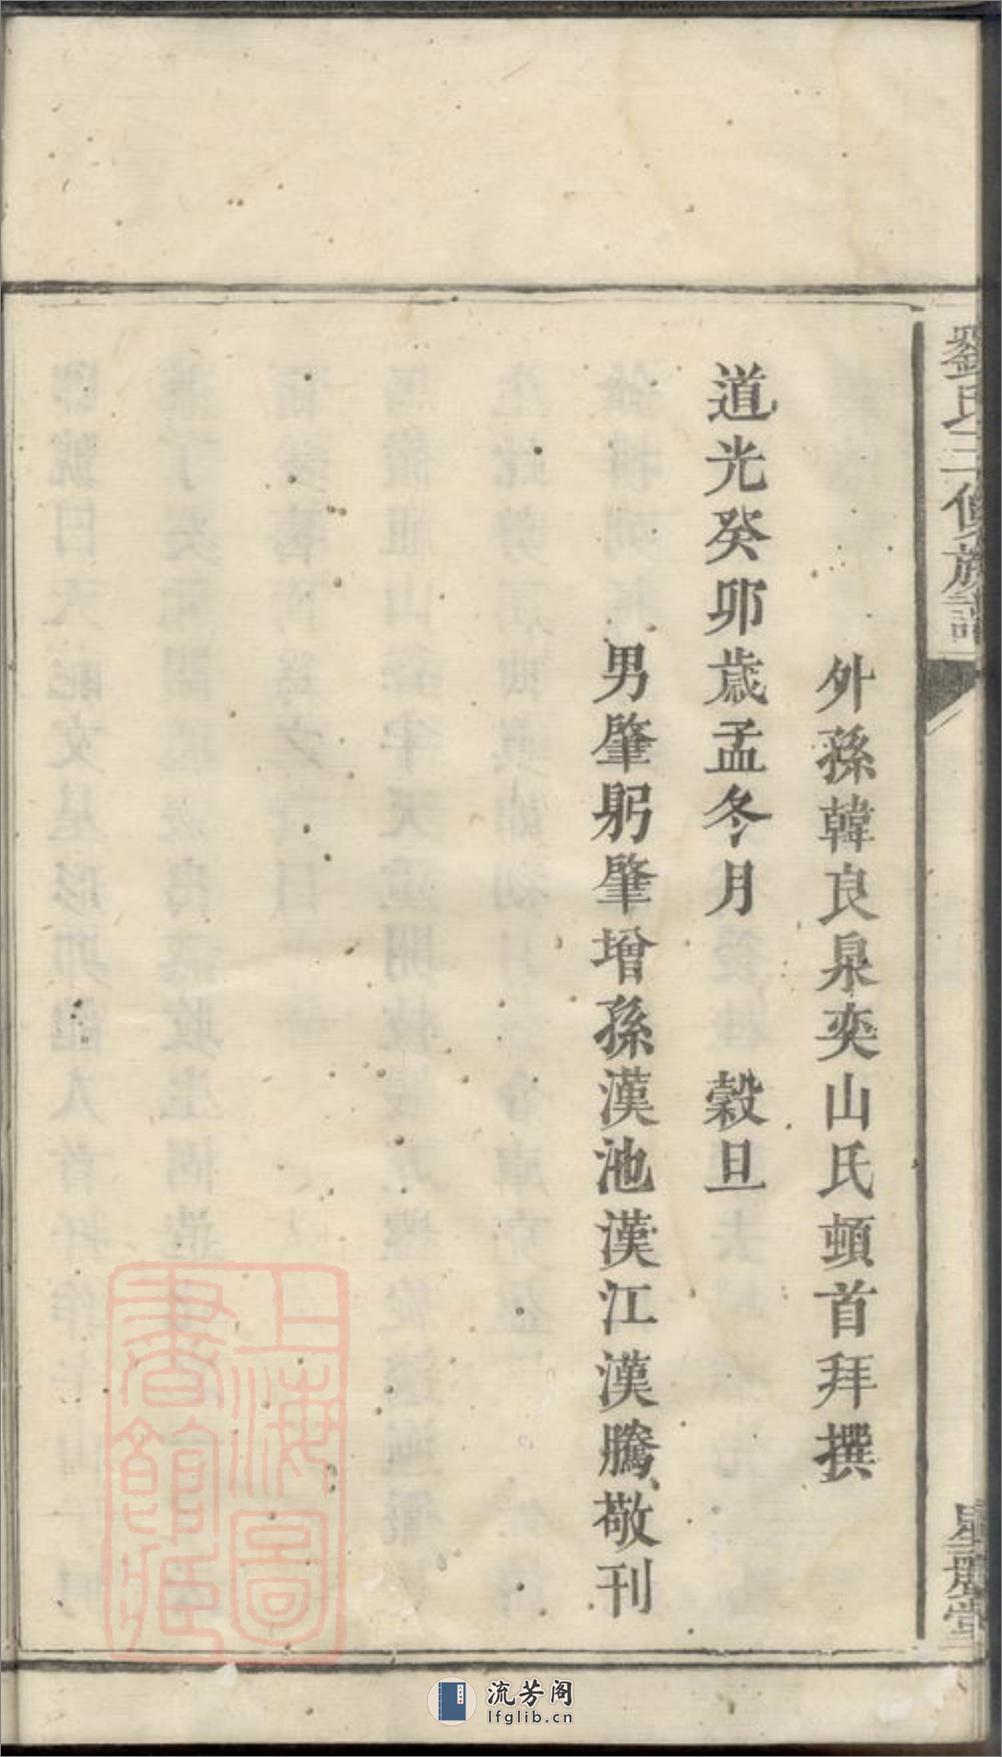 劉氏三修族譜
星聚堂
外孫韓良泉奕山氏頓首拜撰
道光癸卯歲孟冬月 穀旦
男肇躬肇增孫漢池漢江漢騰敬刊
上海圖
書館藏
流芳阁
lfglib.cn